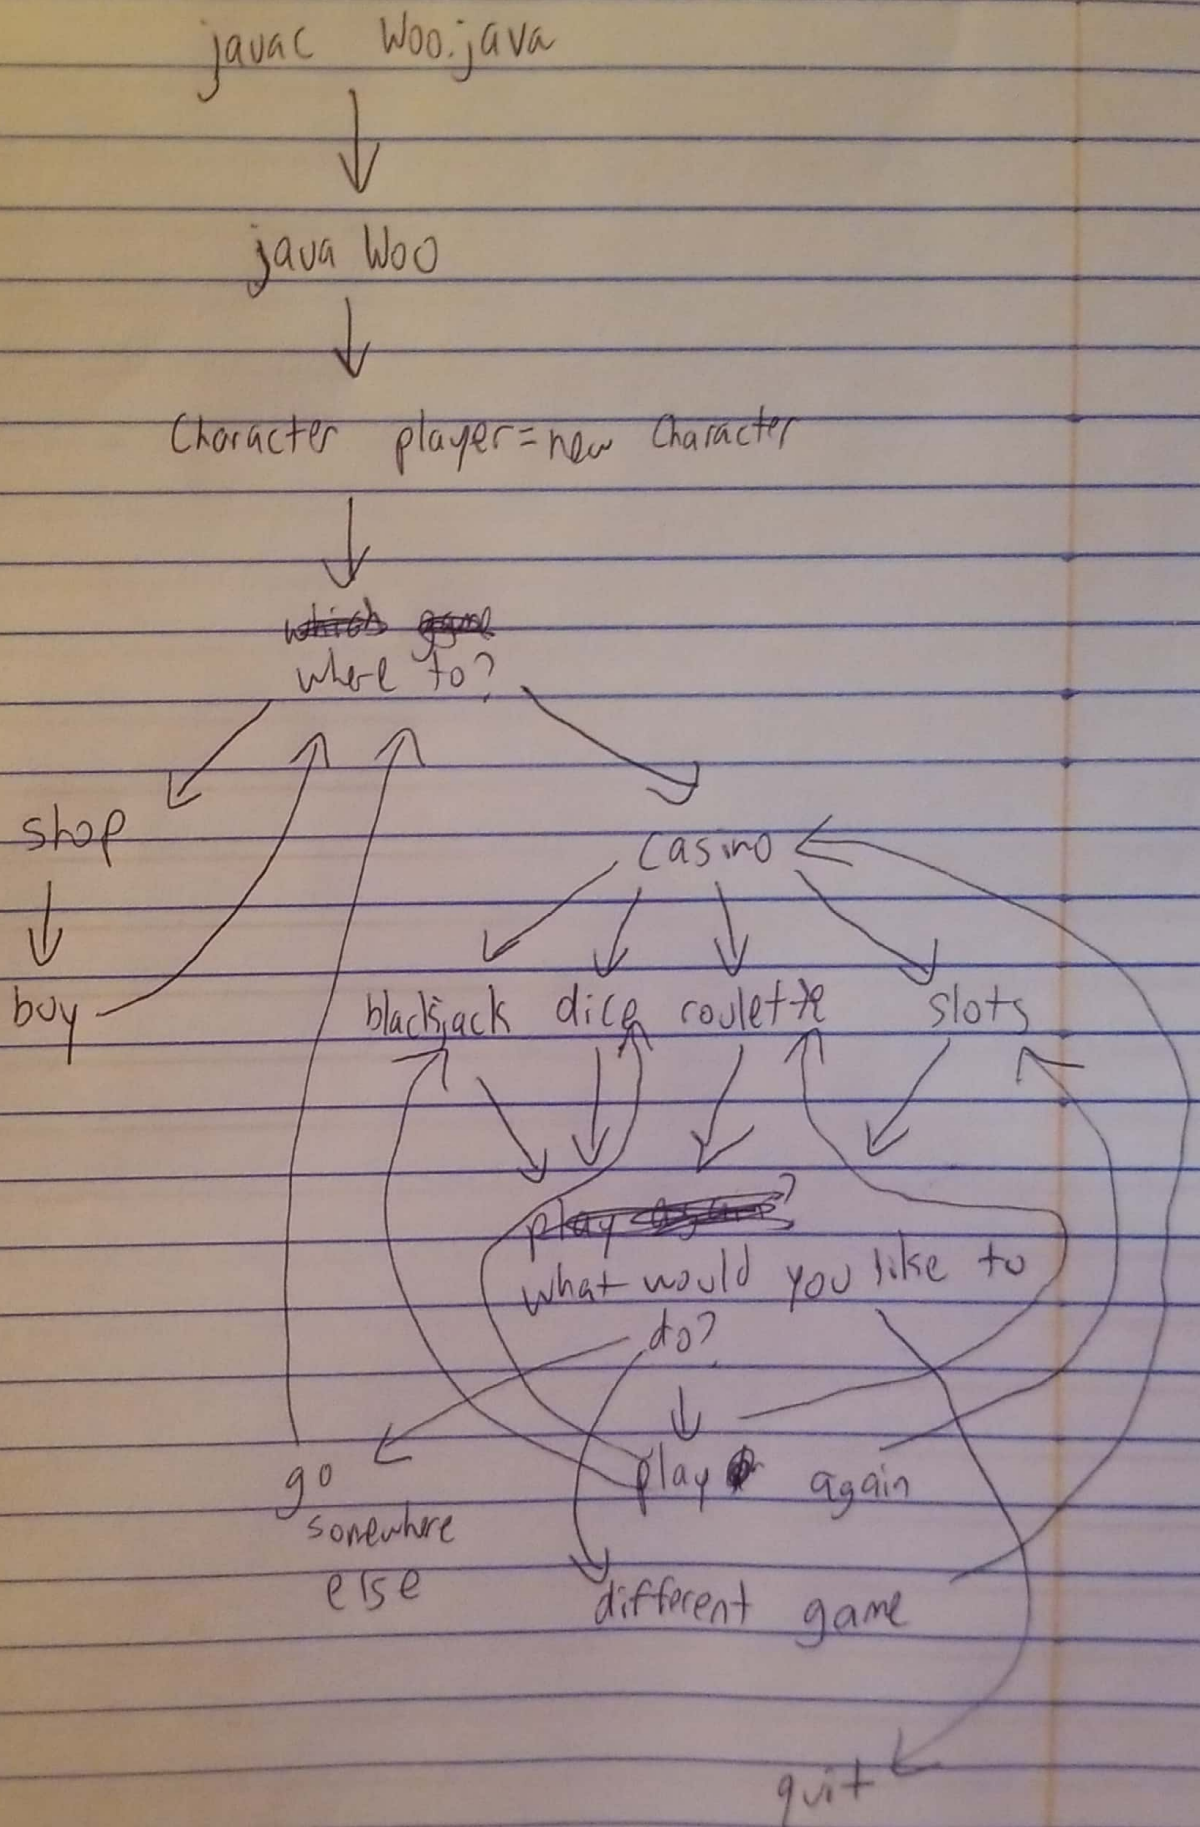 javac Woo.java
java Woo
Character player = new Character
which game
where to?
shop
casino
buy
blackjack dice roulette slots
play again?
what would you like to
do?
go
somewhere
else
play again
different game
quit